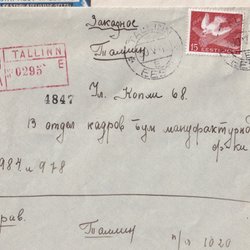 Заказное
Таллин
TALLINN
E
№ 0295
15 EESTI
EESTI
4847
Ул. Копли 68.
В отдел кадров бум мануфактурной
ф-ки
984 и 978
рав.
Таллин
п/п 1020